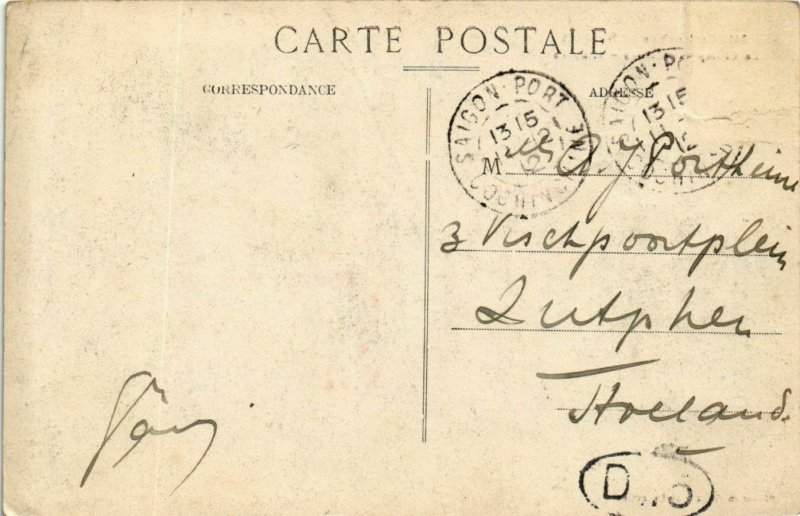 CARTE POSTALE
CORRESPONDANCE
ADRESSE
SAIGON-PORT COCHINCHINE
13 15
SAIGON-PO
13 15
Mlle A. J. Portheine
3 Vischpoortplein
Zutphen
Holland.
D. C